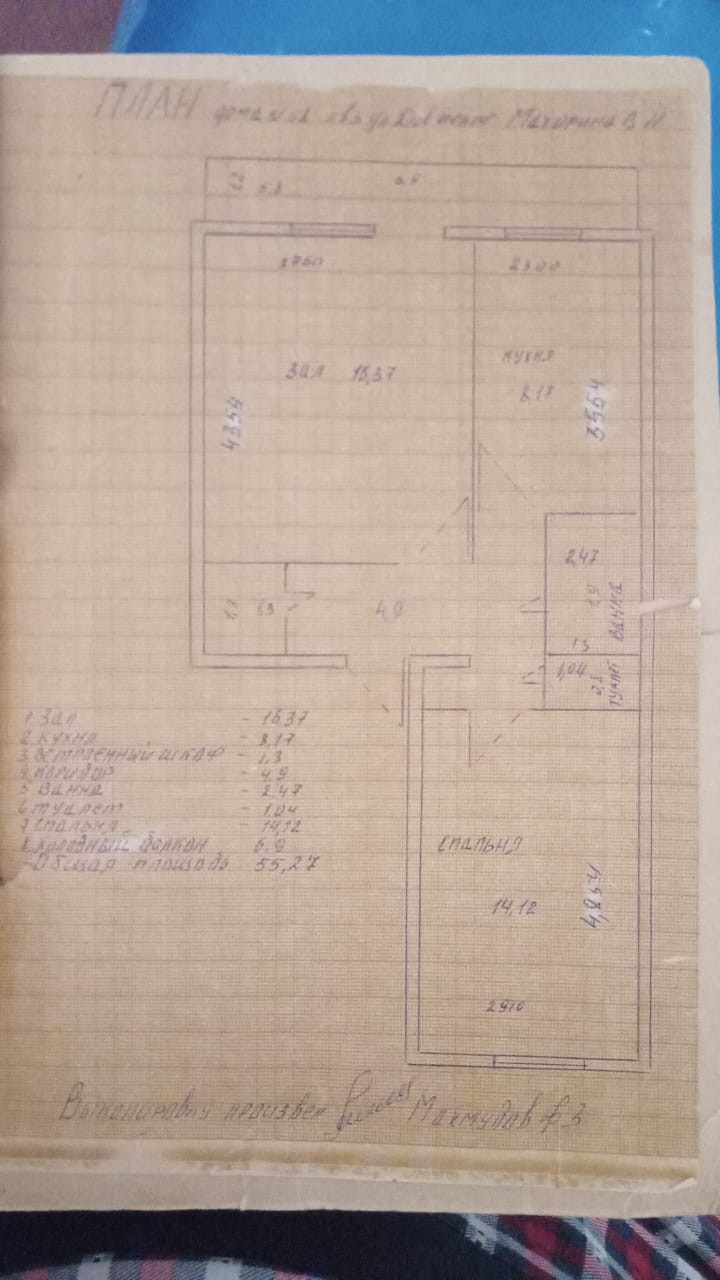 ПЛАН Махорина В Н
5.8
2760
2300
зал 16,37
кухня
8,17
4354
3554
2,47
1,9
ванна
1,3
63
4,9
13
1,04
0,8
туалет
1 Зал - 16.37
2 кухня - 8,17
3 встроенный шкаф - 1,3
4 коридор - 4.9
5 Ванна - 2.47
6 туалет - 1,04
7 спальня - 14,12
8 холодный балкон 6,9
- Общая площадь 55,27
спальня
14,12
4,854
2910
Выкопировку произвел Махмудов Ф З